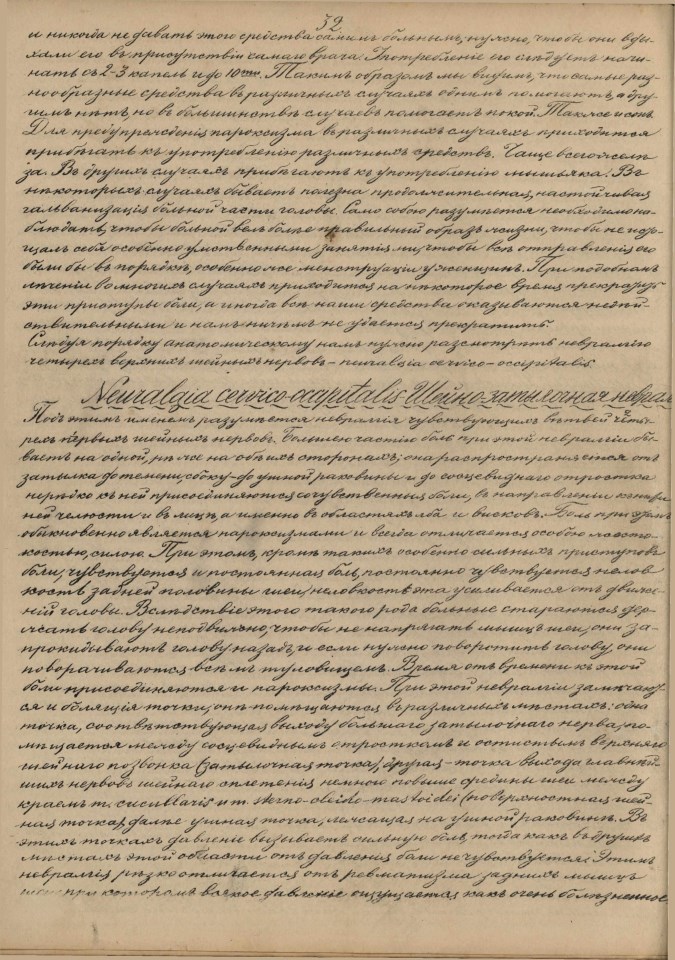 32
и никогда не давать этого средства самимъ больнымъ, нужно, чтобы они вды-
хали его въ присутствіи самаго врача. Употребленіе его слѣдуетъ начи-
нать съ 2-3 капель и до 10 Такимъ образомъ мы видимъ, что самые раз-
нообразные средства въ различныхъ случаяхъ однимъ помогаютъ, а дру-
гимъ нѣтъ, но въ большинствѣ случаевъ помогаетъ покой. Также и сонъ.
Для предупрежденія пароксизма въ различныхъ случаяхъ приходится
прибѣгать къ употребленію различныхъ средствъ. Чаще всего желѣ-
за. Въ другихъ случаяхъ прибѣгаютъ къ употребленію мышьяка. Въ
нѣкоторыхъ случаяхъ бываетъ полезна продолжительная, настойчивая
гальванизація больной части головы. Само собою разумѣется необходимо на-
блюдать, чтобы больной велъ болѣе правильный образъ жизни, чтобы не изну-
щалъ себя особенно умственными занятіями, чтобы всѣ отправленія его
были бы въ порядкѣ, особенно же менструаціи у женщинъ. При подобномъ
лѣченіи во многихъ случаяхъ приходится на нѣкоторое время прекращать
эти приступы боли, а иногда всѣ наши средства оказываются недѣй-
ствительными и намъ ничѣмъ не удается прекратить.
Слѣдуя порядку анатомическому намъ нужно разсмотрѣть невралгію
четырехъ верхнихъ шейныхъ нервовъ – neuralgia cervico-occipitalis.
Neuralgia cervico-occipitalis. Шейно-затылочная неврал
Подъ этимъ именемъ разумѣется невралгія чувствующихъ вѣтвей четы-
рехъ первыхъ шейныхъ нервовъ. Большею частію боль при этой невралгіи бы-
ваетъ на одной, рѣже на обѣихъ сторонахъ; она распространяется отъ
затылка до темени, сбоку – до ушной раковины и до сосцевиднаго отростка
нерѣдко къ ней присоединяются сочувственныя боли, въ направленіи къ нижн
ней челюсти и въ лицѣ, а именно въ областяхъ лба и висковъ. Боль при этомъ
обыкновенно является пароксизмами и всегда отличается особою жесто-
костью, силою. При этомъ, кромѣ такихъ особенно сильныхъ приступовъ
боли, чувствуется и постоянная боль, постоянно чувствуется нелов-
кость задней половины шеи, неловкость эта усиливается отъ движе-
ній головы. Вслѣдствіе этого такого рода больные стараются дер-
жать голову неподвижно, чтобы не напрягать мышцъ шеи, они за-
прокидываютъ голову назадъ, и если нужно поворотить голову, они
поворачиваются всѣмъ туловищемъ. Время отъ времени къ этой
боли присоединяются и пароксизмы. При этой невралгіи замѣчают-
ся и болящія точки; онѣ помѣщаются въ различныхъ мѣстахъ: одна
точка, соотвѣтствующая выходу большаго затылочнаго нерва, по-
мѣщается между сосцевиднымъ отросткомъ и остистымъ верхняго
шейнаго позвонка (затылочная точка), другая – точка выхода главнѣй-
шихъ нервовъ шейнаго сплетенія немного повыше средины шеи между
краемъ m. cucullaris и m. sterno-cleido-mastoidei (поверхностная шей-
ная точка), далѣе ушная точка, лежащая на ушной раковинѣ. Въ
этихъ точкахъ давленіе вызываетъ сильную боль, тогда какъ въ другихъ
мѣстахъ этой области отъ давленія боли не чувствуется. Этимъ
невралгія рѣзко отличается отъ ревматизма заднихъ мышцъ
шеи, при которомъ всякое давленіе ощущается какъ очень болѣзненное